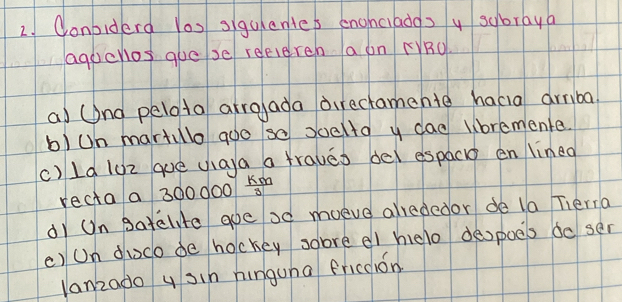 2. Considera los siguientes enunciados y subraya
aquellos que se refieren a un MRU.
a) Una pelota arrojada directamente hacia arriba.
b) Un martillo que se suelta y cae libremente.
c) La luz que viaja a través del espacio en línea
recta a 300000 Km/s
d) Un satélite que se mueve alrededor de la Tierra
e) Un disco de hockey sobre el hielo después de ser
lanzado y sin ninguna fricción.